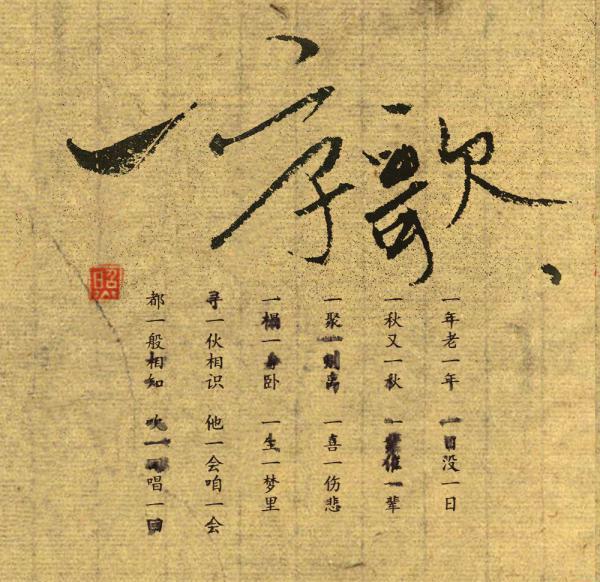 一字歌
照
一年老一年 一日没一日
一秋又一秋 一辈催一辈
一聚一别离 一喜一伤悲
一榻一身卧 一生一梦里
寻一伙相识 他一会咱一会
都一般相知 吹一回唱一回